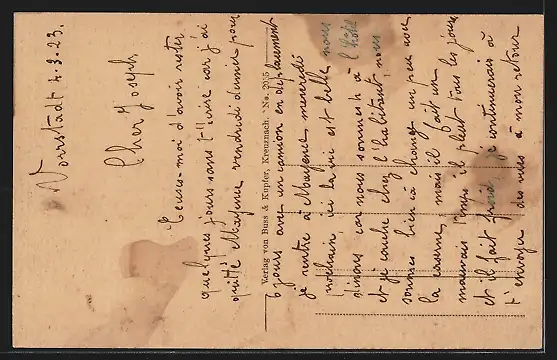 Vorrstadt 4.3.23.
Cher Joseph,
Excuses-moi d'avoir rester
quelques jours sans t'écrire car j'ai
quitté Mayence vendredi dernier pour
Verlag von Buss & Küpfer, Kreuznach. No. 2035
6 jours avec un camion en déplacement
je rentre à Mayence mercredi
prochain, ici la vie est belle nous
dinons car nous sommes à l'hôtel
et je couche chez l'habitant, nous
sommes bien ça change un peu avec
la caserne, mais il fait un
mauvais temps il pleut tous les jours
et il fait froid, je continuerais à
t'envoyer des vues à mon retour